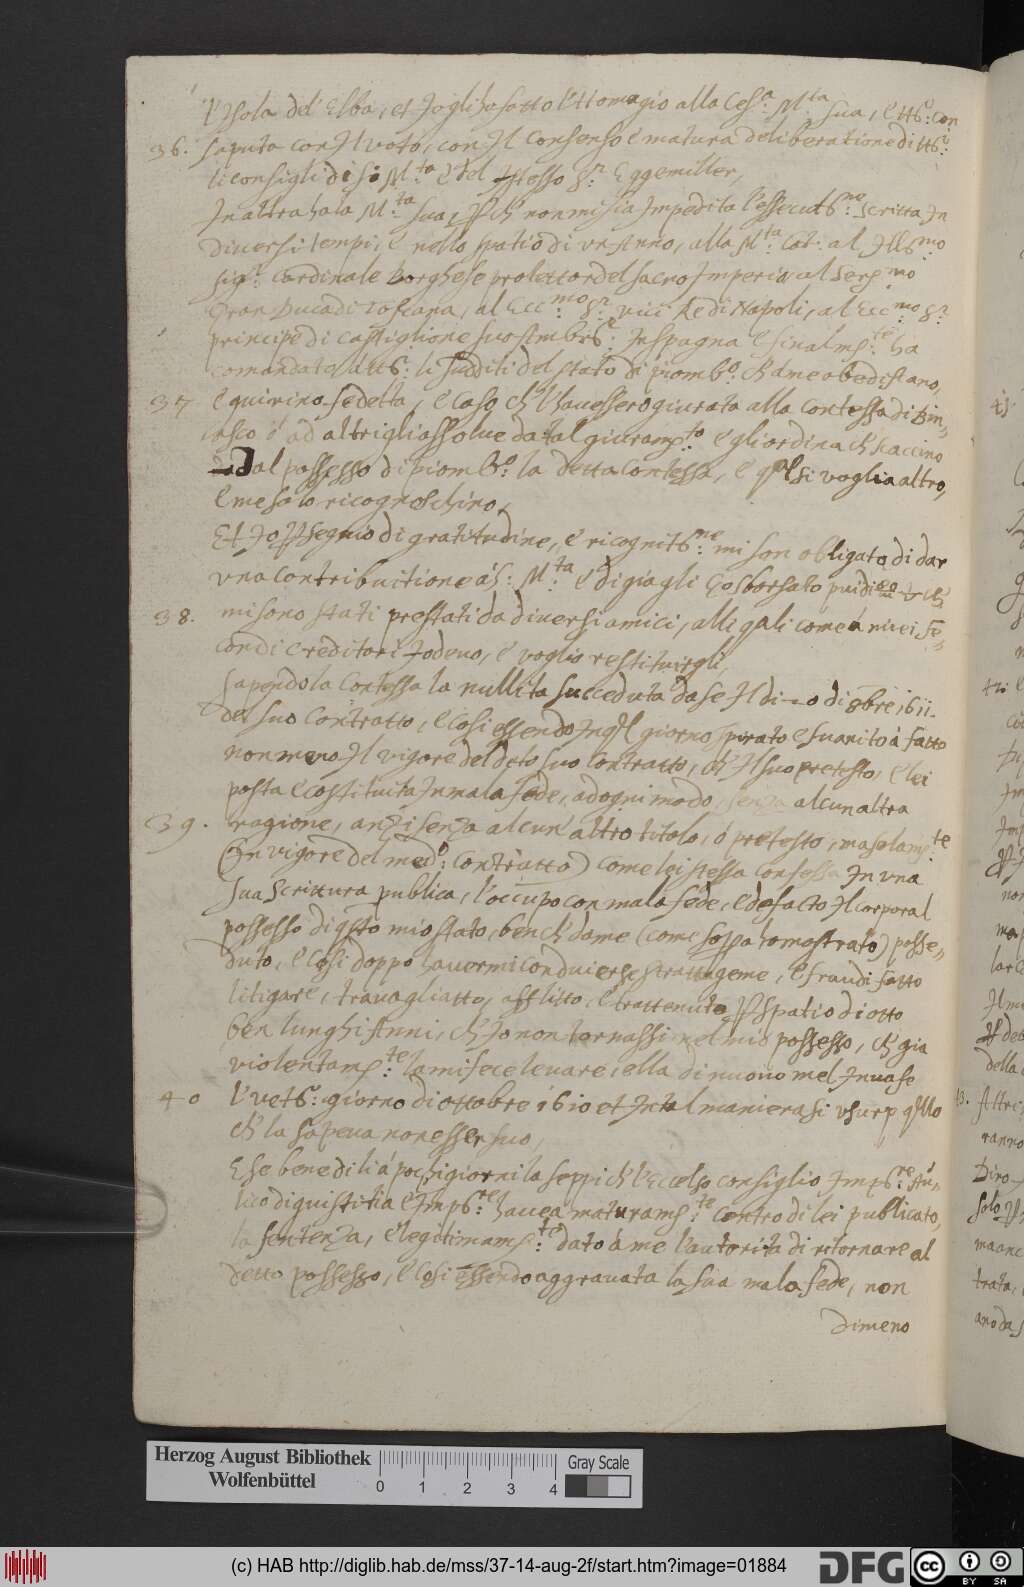 l'Isola del' Elba, et Jo gli ho fatto l'Homagio alla Ces.a M.ta sua, e tts.e: con
36. saputa con Il voto, con Il consenso e matura deliberatione di tts.i:
li consigli di S. M.ta e del Istesso S.r Eggemiller,
In altra ha la M.ta sua, p ch' non mi sia Impedita l'essecuts.ne scritta In
diversi tempi, e nello spatio di un Anno, alla M.ta Cat. al Ills.mo
sig.r Cardinale Borghese protettor del sacro Imperio al Sers.mo
Gran Duca di Toscana, al Ecc.mo S.r vici Re di Napoli, al Ecc.mo S.r
principe di Castiglione suo Ambrs.e: In spagna e finalms.te ha
comandato a tts.i: li sudditi del stato di piomb.o: ch' a me obediscano,
37 e guirino fedelta, e caso ch' l'havessero giurata alla Contessa di Bin=
asco ó ad altri gli assolue da tal giurams.to e gli ordina ch' scaccino
dal possesso di piomb.o: la detta Contessa, e qal si voglia altro,
e me solo ricognoschino,
Et Jo p segno di gratitudine, e ricognits.ne mi son obligato di dar
una contribuitione á S: M.ta e di piagli
38. mi sono stati prestati da diversi amici, alli qali come á miei se=
condi creditori Jo devo, e voglio restituirgli,
sapendo la Contessa la nullita succeduta da se Il di di 8bre 1611.
del suo Contratto, e cosi essendo In ql giorno spirato e suanito á fatto
non meno Il vigore del deto suo Contratto, ch' Il suo pretesto, e lei
posta e costituita In mala fede, ad ogni modo, senza alcun altra
39. ragione, anzi senza alcun' altro titolo, ó pretesto, ma solams.te
(In vigore del med.o: contratto) come lei stessa confessa In una
sua scrittura publica, l'occupo con mala fede, e de facto Il corporal
possesso di qsto mio stato, ben ch' da me (come sopa ho mostrato) posse=
duto, e cosi doppo havermi con diverse strattageme, e fraudi fatto
litigare, travagliatto, afflitto, e trattenuto p spatio di otto
ben lunghi Anni, ch' Jo non tornassi nel mio possesso, ch' gia
violentams.te la mi fece levare, ella di nuovo me l'Invase
40 l'vets.o: giorno di ottobre 1610 et In tal maniera si usurp qllo
ch' la sapeva non esser suo,
E se bene di li á pochi giorni la seppi ch' l'Eccelso consiglio Imps.re Au=
lico di giustitia e Imps.re havea maturams.te contro di lei publicato,
la sentenza, e legitimams.te dato á me l'autorita di ritornare al
detto possesso, e cosi essendo aggravata la sua mala fede, non
dimeno
Herzog August Bibliothek
Wolfenbüttel
0 1 2 3 4
Gray Scale
(c) HAB http://diglib.hab.de/mss/37-14-aug-2f/start.htm?image=01884
DFG
cc BY SA